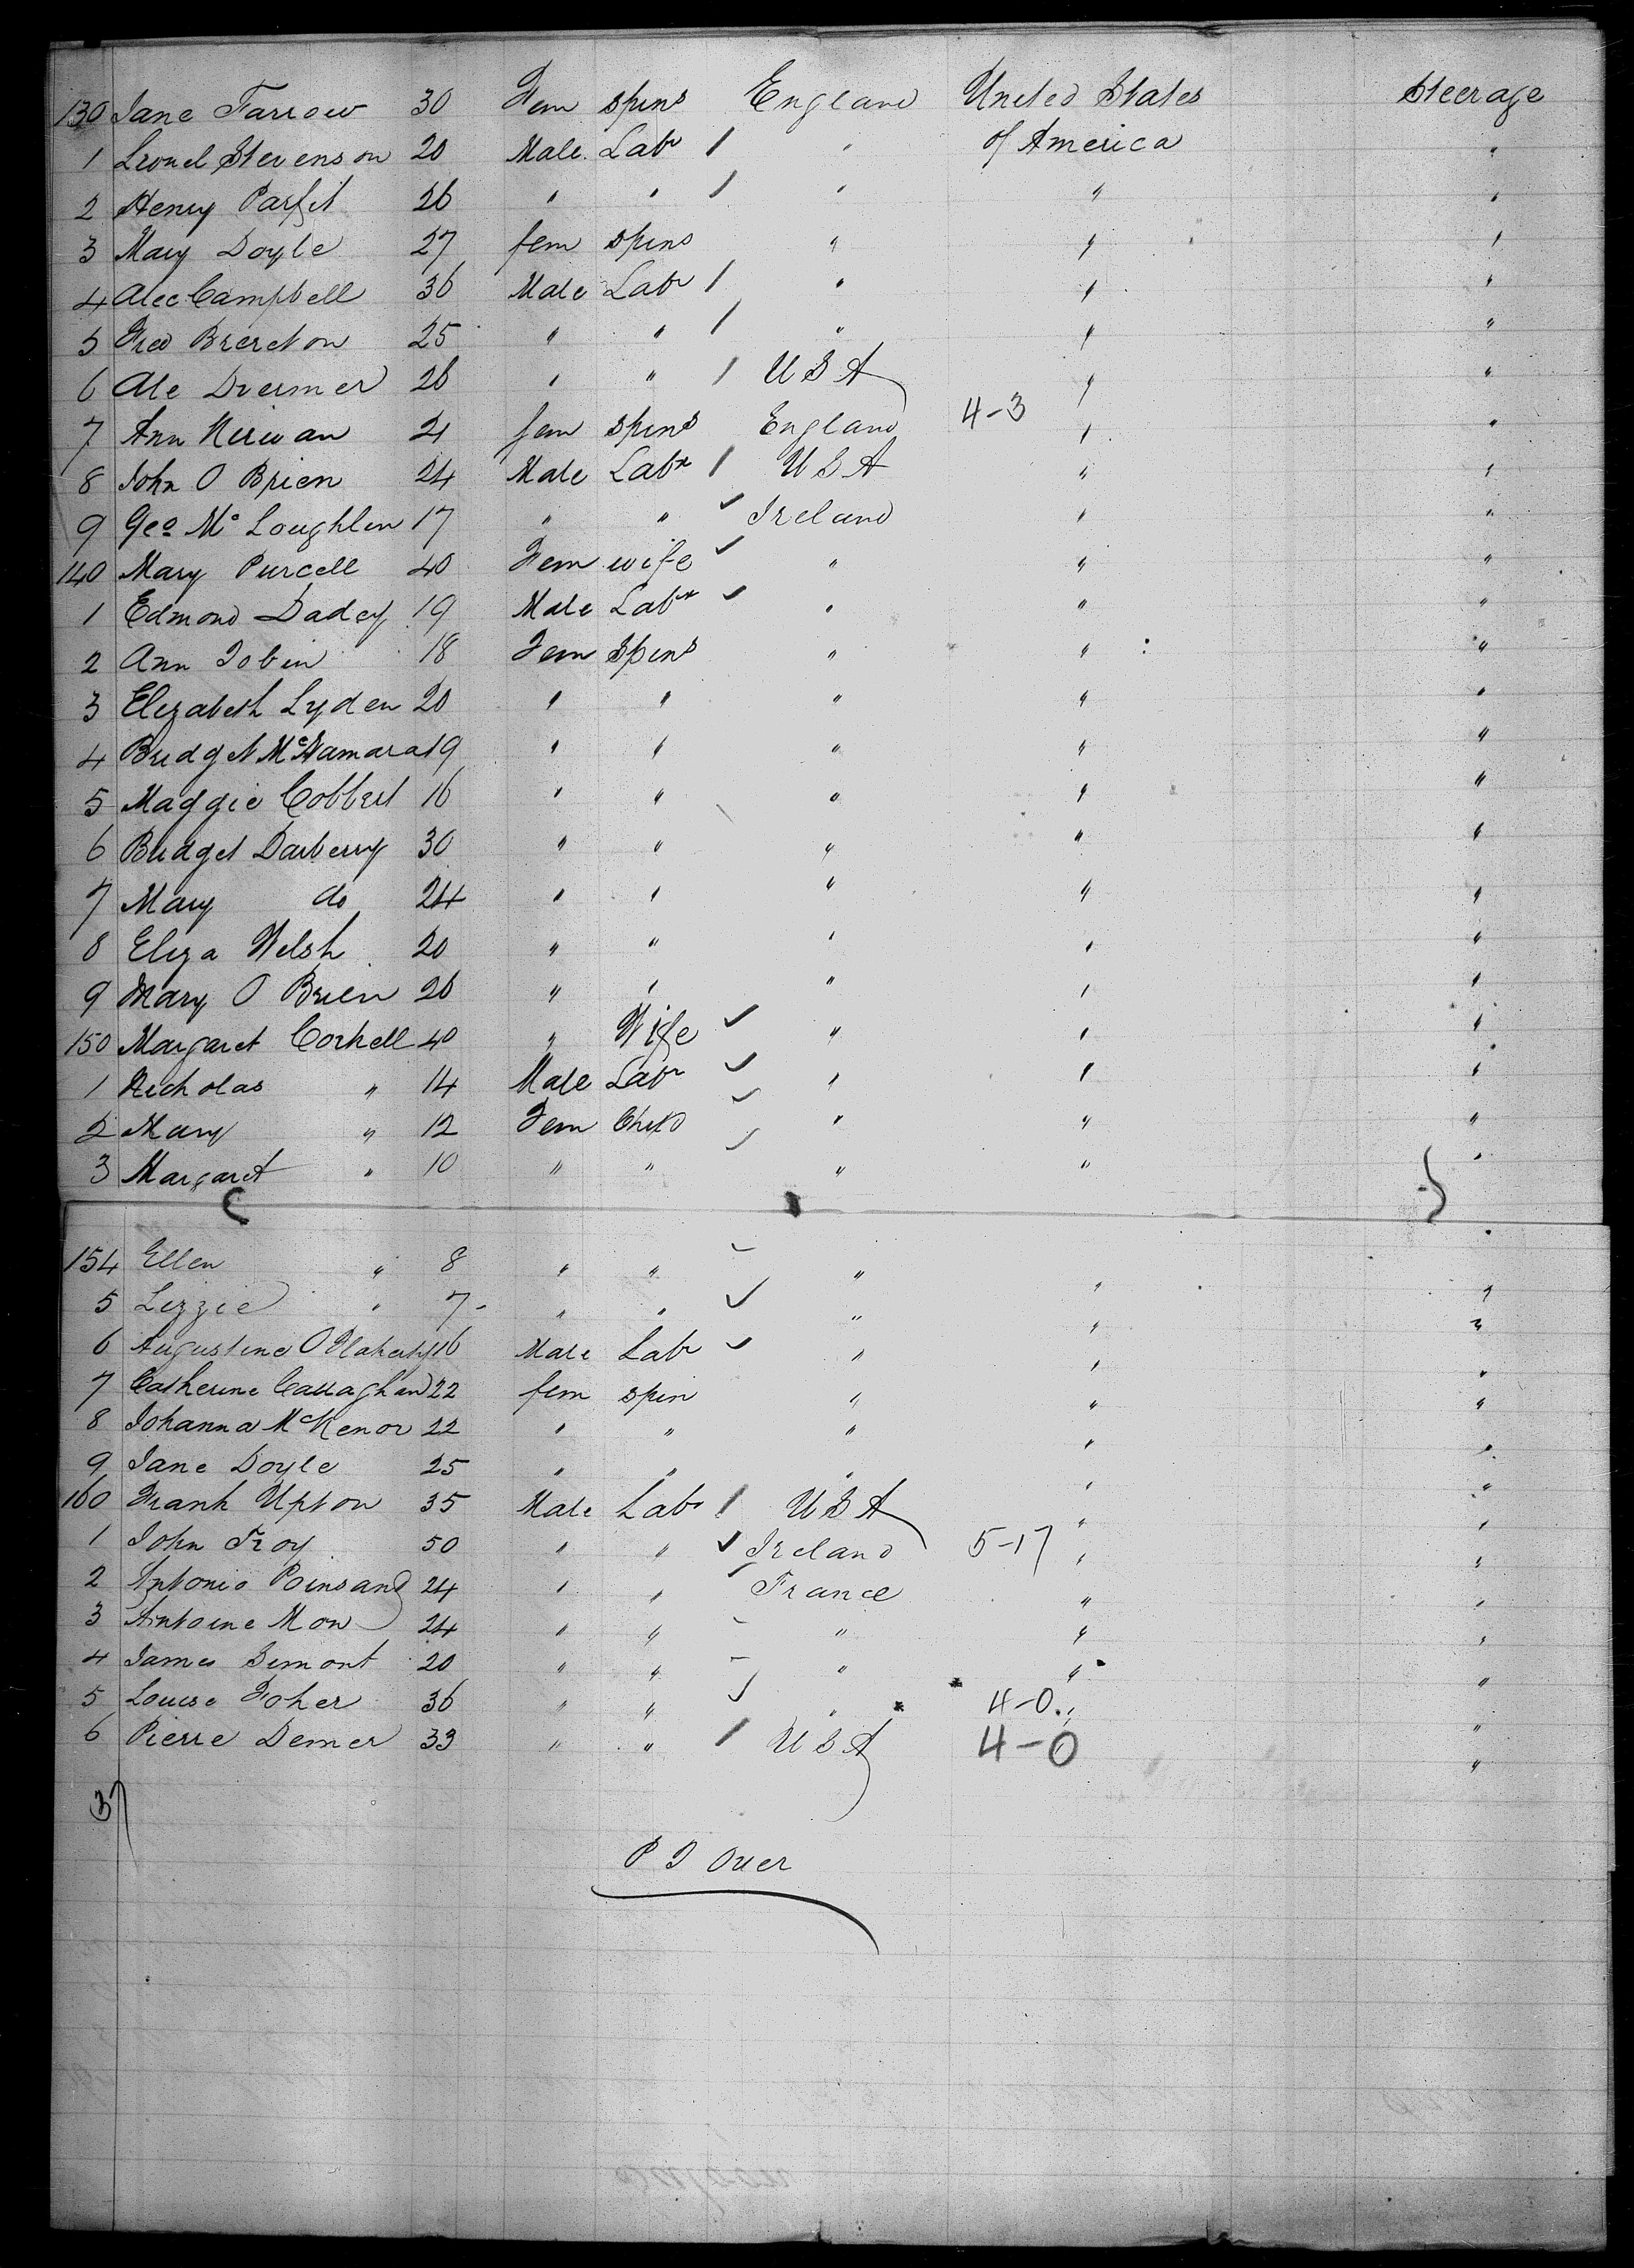 130 Jane Farrow 30 Fem spins England United States Steerage
1 Lionel Stevenson 20 Male Labr / " of America "
2 Henry Parfit 26 " " / " " "
3 Mary Doyle 27 fem spins " " "
4 Alec Campbell 36 Male Labr / " " "
5 Fred Brereton 25 " " / " " "
6 26 " " / U S A " "
7 Ann Kirwan 21 fem spins England 4-3 " "
8 John O Brien 24 Male Labr / U S A " "
9 Geo Mc Loughlin 17 " " ✓ Ireland " "
140 Mary Purcell 40 Fem wife ✓ " " "
1 Edmond Dadey 19 Male Labr ✓ " " "
2 Ann Tobin 18 Fem Spins " " "
3 Elizabeth Lyden 20 " " " " "
4 Bridget McNamara 19 " " " " "
5 Maggie Cobbert 16 " " " " "
6 Bridget Darberry 30 " " " " "
7 Mary do 24 " " " " "
8 Eliza Welsh 20 " " " " "
9 Mary O Brien 26 " " " " "
150 Margaret Corkell 40 " Wife ✓ " " "
1 Nicholas " 14 Male Labr ✓ " " "
2 Mary " 12 Fem Child ✓ " " "
3 Margaret " 10 " " ✓ " " "
154 Ellen " 8 " " " " "
5 Lizzie " 7 " " ✓ " " "
6 Augustine O Flaherty 16 Male Labr ✓ " " "
7 Catherine Callaghan 22 fem spin " " "
8 Johanna McKenor 22 " " " " "
9 Jane Doyle 25 " " " " "
160 Frank Upton 35 Male Labr / U S A " "
1 John Troy 50 " " ✓ Ireland 5-17 " "
2 Antonio Poinsand 24 " " France " "
3 Antoine Mon 24 " " " " "
4 James Simont 20 " " " " "
5 Louise Foher 36 " " ✓ " 4-0 " "
6 Pierre Demer 33 " " / U S A 4-0 "
3
P T Over